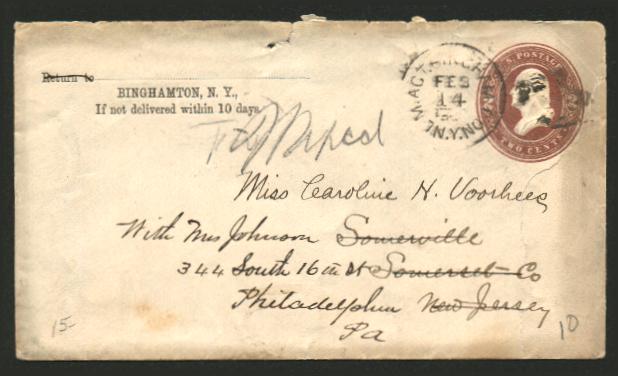 Return to
BINGHAMTON, N. Y.,
If not delivered within 10 days
BINGHAMTON, N.Y.
FEB
14
U.S. POSTAGE
TWO CENTS
Miss Caroline H. Voorhees
With Mrs Johnson Somerville
344 South 16th St Somerset Co
Philadelphia New Jersey
Pa
15-
10